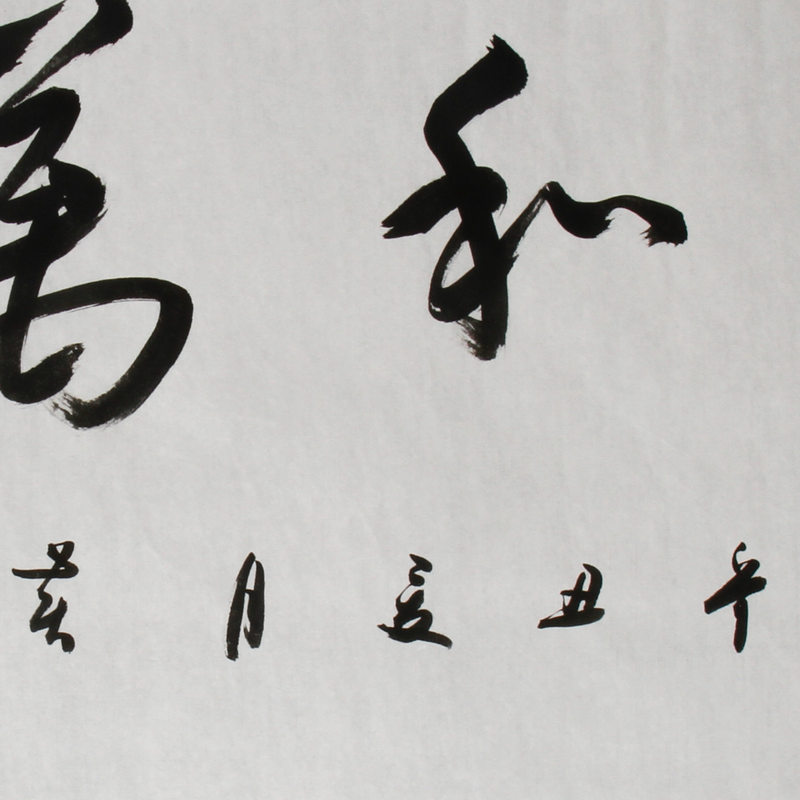 和萬
辛丑夏月